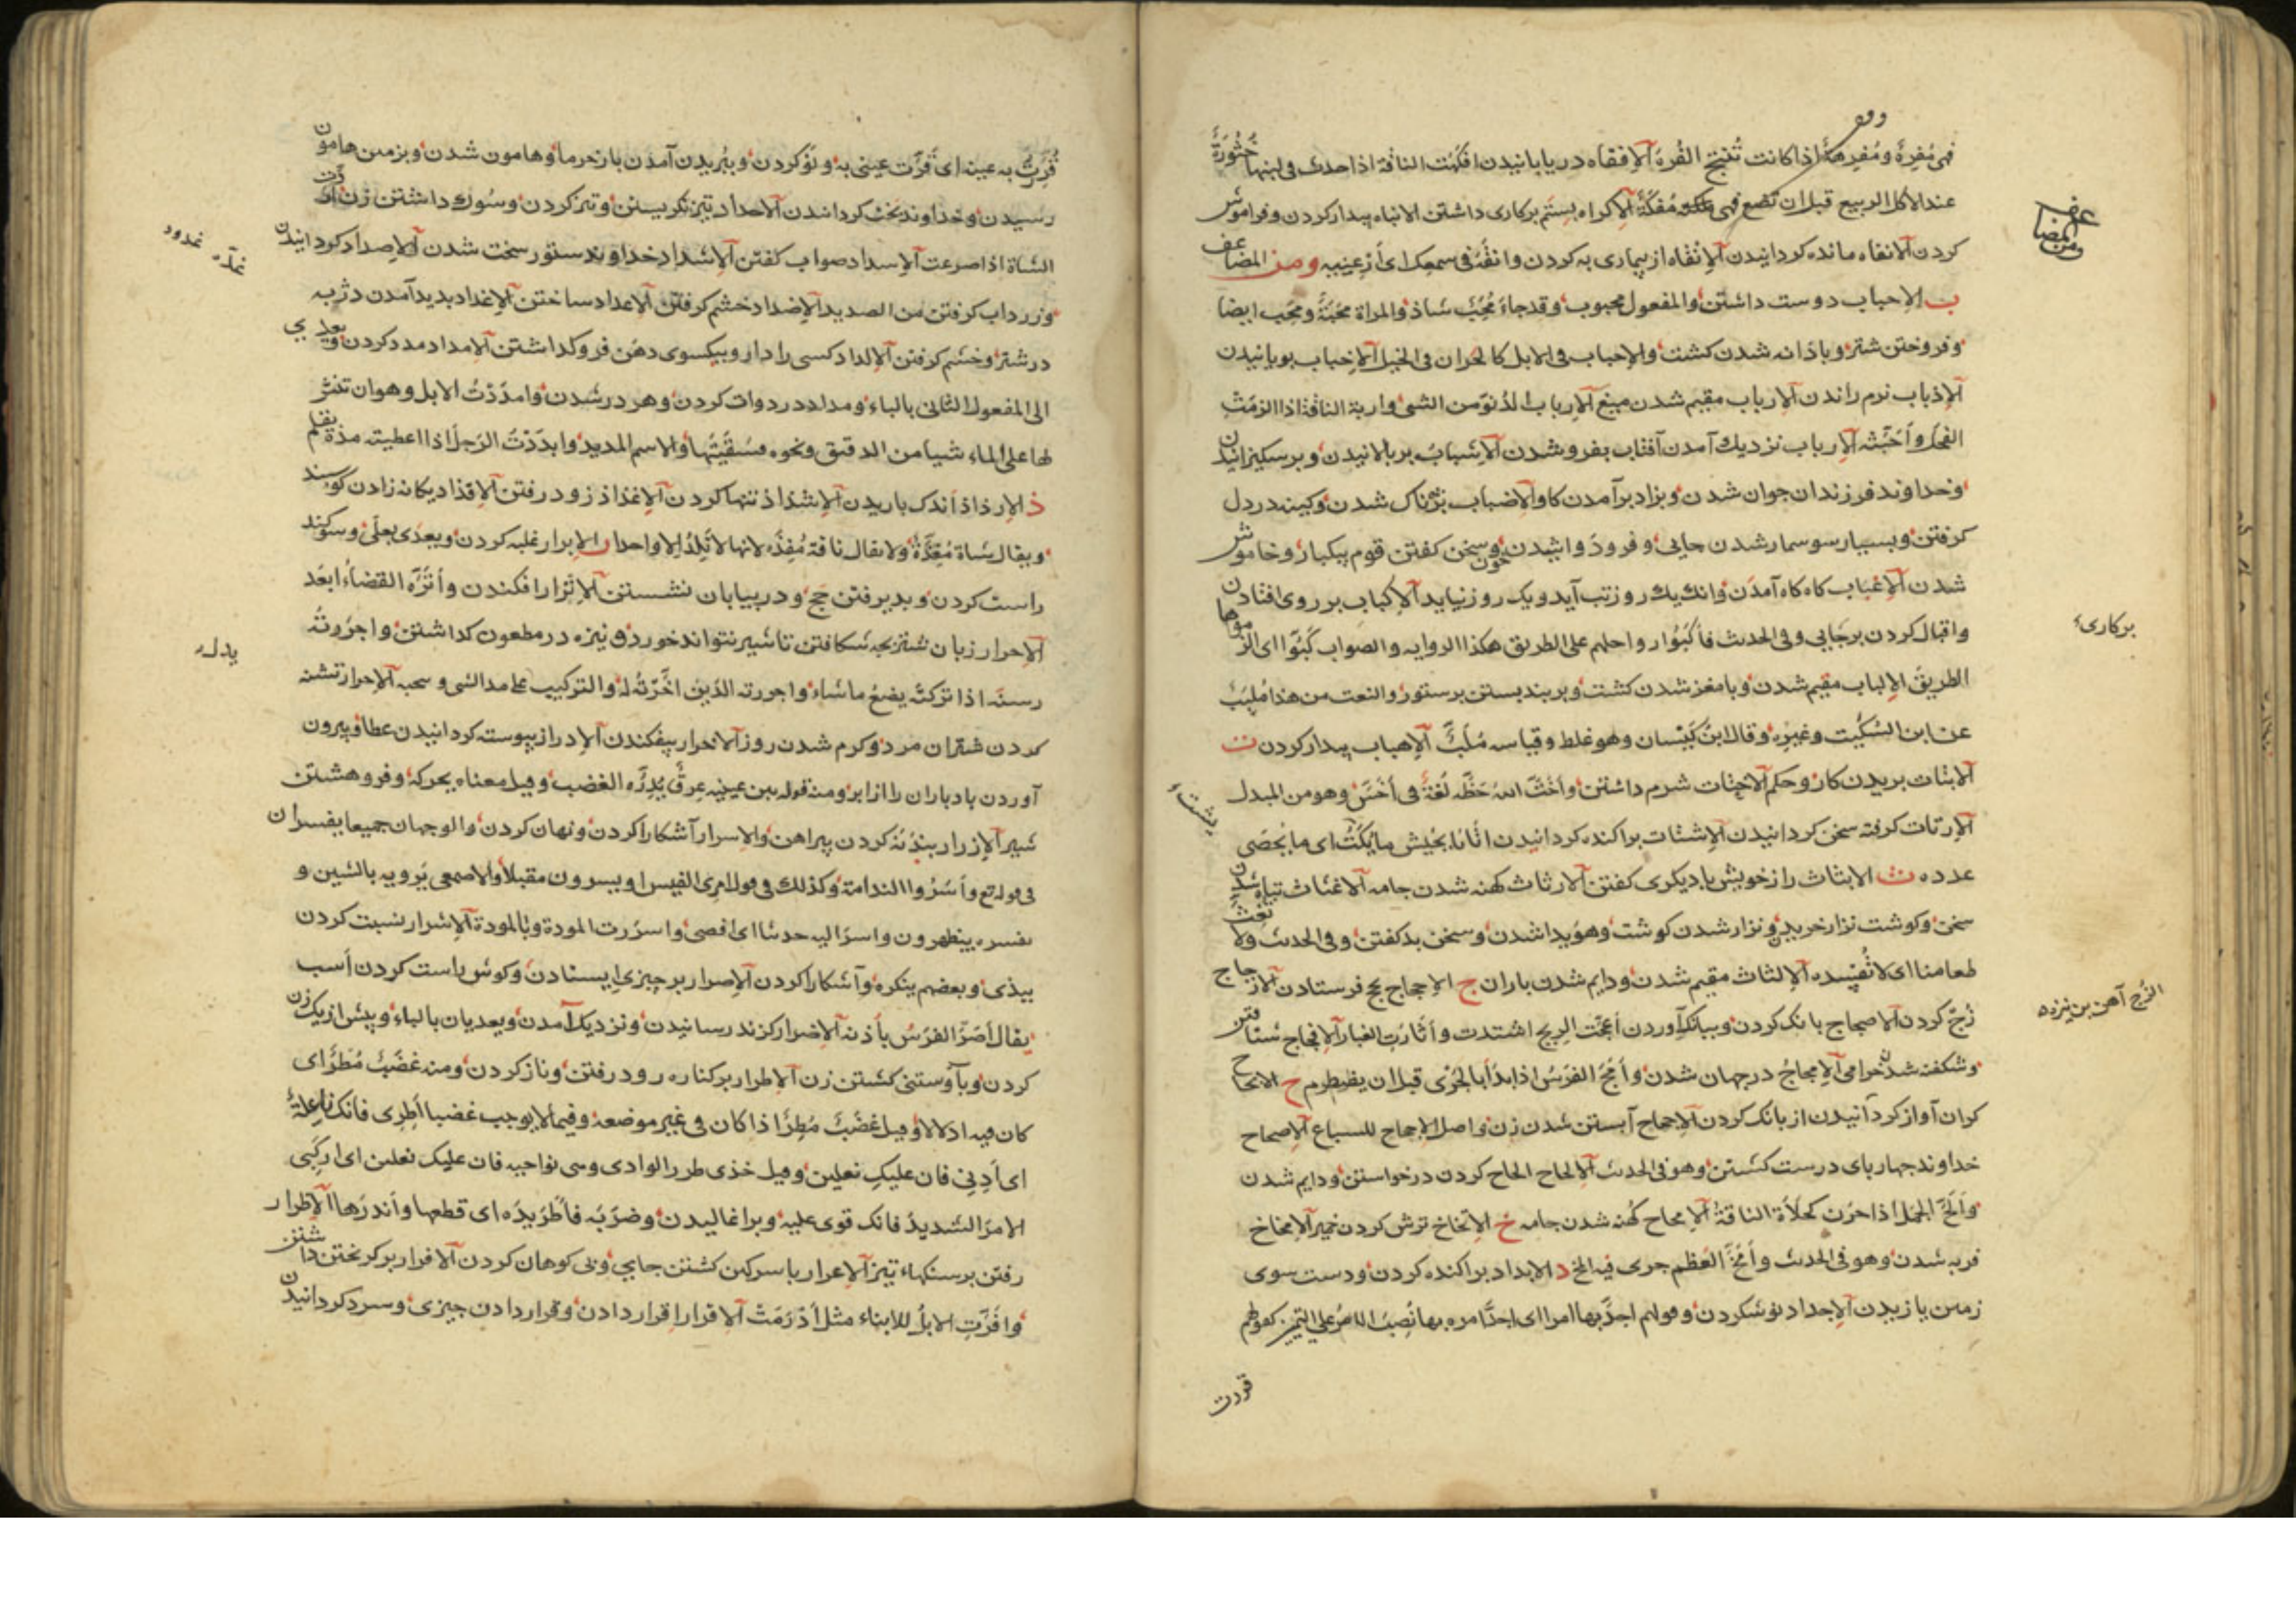 فهی مُفرِهٌ ومُفرِهةٌ اذا کانت تُنتِج الفُره الإفقاه دریابانیدن افکهت الناقة اذا حدث فی لبنها خثورة
عند الاکل الربیع قبل ان تضع فهی مُفکِهٌ الإکراه بستم برکاری داشتن الانباه بیدار کردن وفراموش
کردن الانفاه مانده کردانیدن الإنقاه از بیماری به کردن وانقه فی سمعک ای أرعنیه ومن المضاعف
ب الاحباب دوست داشتن والمفعول محبوب وقد جاء مُحَبّ شاذ والمراة محبة ومحب ایضا
وفروختن شتر وبادانه شدن کشت والاحباب فی الابل کالحران فی الخیل الاخباب بویانیدن
الاذباب نرم راندن الارباب مقیم شدن میغ الارباب الدُنوّ من الشی واربة الناقة اذا لزمت
الفحل وأحبته الارباب نزدیک آمدن آفتاب بفرو شدن الاشباب بربالانیدن وبرسکیزانیدن
وخداوند فرزندان جوان شدن وبزاد برآمدن کاو الاضباب نژناک شدن وکینه در دل
کرفتن وبسیار سوسمار شدن جایی وفرود وا شیدن خون وسخن کفتن قوم بیکبار وخاموش
شدن الاغباب کاه کاه آمدن وانک یک روز تب آید ویک روز نیاید الاکباب بر روی افتادن
واقبال کردن برجایی وفی الحدیث فاکبوا رواحلهم علی الطریق هکذا الروایه والصواب کبوا ای الزموها
الطریق الالباب مقیم شدن وبامغز شدن کشت وبربند بستن برستور والنعت من هذا مُلبَب
عن ابن السکیت وغیره وقال ابن کیسان وهو غلط وقیاسه مُلَبّ الاهباب بیدار کردن ت
الابتات بریدن کار وحکم الاختات شرم داشتن وأخَتّ الله حَظّه لُغةٌ فی أخَسّ وهو من المبدل
الارتات کرفته سخن کردانیدن الاشتات براکنده کردانیدن اتانا بجیش ما یُکَتّ ای ما یُحصی
عدده ث الابثاث راز خویش با دیکری کفتن الارثاث کهنه شدن جامه الاغثاث تباه شدن
سخن وکوشت نزار خریدن ونزار شدن کوشت وهویدا شدن وسخن بد کفتن وفی الحدیث ولا تغث
طعامنا ای لا تُفسِده الالثاث مقیم شدن ودایم شدن باران ج الاحجاج بحج فرستادن الازجاج
زُجّ کردن الاضجاج بانک کردن وببانک آوردن أعجّت الریح اشتدت وأثارت الغبار الافجاج شتافتن
وشکفته شدن خرامی الامجاج در جهان شدن وأمجّ الفرس اذا بدأ بالجری قبل ان یضطرم ح الابحاح
کران آواز کردانیدن از بانک کردن الاجحاح آبستن شدن زن واصل الاجحاح للسباع الاصحاح
خداوند چهاربای درست کشتن وهو فی الحدیث الالحاح الحاح کردن درخواستن ودایم شدن
وألحّ الجمل اذا حرن کخلأة الناقة الامحاح کهنه شدن جامه خ الاتخاخ ترش کردن خمیر الامخاخ
فربه شدن وهو فی الحدیث وأمخّ العظم جری فیه المخ د الابداد براکنده کردن ودست سوی
زمین یازیدن الاجداد نو شکردن وقولهم اجدّ بها امرا ای اجدّ امره بها نُصِبَ الامرُ علی التمیز کقولهم
قررت
عف
ومن المضا
برکاری
الزج آهن بن نیزه
قُرِرتُ به عینه ای قَرَّت عینی به ونو کردن وببُریدن آمدن بار خرما وهامون شدن وبزمین هامون
رسیدن وخداوند بخت کردانیدن الاحداد تیز نکریستن وتیز کردن وسوک داشتن زن
الشاة اذا صرعت الاسداد صواب کفتن الاشداد خداوند ستور سخت شدن الاصداد کردانیدن
وزرداب کرفتن من الصدید الاضداد خشم کرفتن الاعداد ساختن الاغداد بدید آمدن دژپه
در شتر وخشم کرفتن الالداد کسی را دارو بیکسوی دهن فرو کداشتن الامداد مدد کردن ویعدی
الی المفعول الثانی بالباء ومداد در دوات کردن وهر در شدن وامددتُ الابل وهو ان تنثر
لها علی الماء شیأ من الدقیق ونحوه فتسقیتها والاسم المدید وامددتُ الرجل اذا اعطیته مدة بقلم
ذ الارذاذ اندک باریدن الاشذاذ تنها کردن الاغذاذ زود رفتن الافذاذ یکانه زادن کوسپند
ویقال شاة مُفِذّةٌ ولا یقال ناقة مُفِذّه لانها لا تلِدُ الا واحدا ر الابرار غلبه کردن ویعدی بعلی وسوکند
راست کردن وبدیرفتن حج ودر بیابان نشستن الاترار افکندن وأترّه القضاءُ ابعَد
الاجرار زبان شتر بچه شکافتن تا شیر نتواند خورد ونیزه در مطعون کداشتن واجررته
رسنه اذا ترکته یصنع ما شاء واجررته الدَین اخّرتُه له والترکیب علی مد الشی وسحبه الاحرار تشنه
کردن شتران مرد وکرم شدن روز الاخرار بیفکندن الادرار پیوسته کردانیدن عطا وبیرون
آوردن باد باران را از ابر ومنه قوله بین عینیه عِرقٌ یُدِرّه الغضب وقیل معناه یحرکه وفروهشتن
شیر الازرار بندنه کردن پیراهن والاسرار آشکارا کردن ونهان کردن والوجهان جمیعا یفسران
فی قوله تع وأسَرُّوا الندامة وکذلک فی قول امری القیس او یسرون مقبلا والاصمعی یَرویه بالشین و
یفسره یظهرون واسرّ الیه حدیثا ای افضی واسررت المودة وبالمودة الاشرار نسبت کردن
ببذی وبعضهم ینکره وآشکارا کردن الاصرار بر چیزی ایستادن وکوش راست کردن أسب
یقال أصَرّ الفرسُ بأذنه الاضرار کزند رسانیدن ونزدیک آمدن ویعدیان بالباء وبیش از یک زن
کردن وبا وسنی کشتن زن الاطرار بر کناره رود رفتن وناز کردن ومنه غضَبٌ مُطِرٌّ ای
کان فیه ادلالا وقیل غضَبٌ مُطِرٌّ اذا کان فی غیر موضعه وفیما لا یوجب غضبا أطِرّی فانک ناعلة
ای أدِلّی فان علیکِ نعلین وقیل خذی طرر الوادی وهی نواحیه فان علیک نعلین ای ارکبی
الامر الشدید فانک قوی علیه وبراغالیدن وضربه فأطرّ یدَه ای قطعها وأندرها الاظرار
رفتن بر سنکهاء تیز الاعرار با سرکین کشتن جایی وبی کوهان کردن الافرار بر کریختن داشتن
وافرّت الابلُ للاثناء مثل أدرَمَت الاقرار اقرار دادن وقرار دادن چیزی وسرد کردانیدن
غدّه غدود
یدل